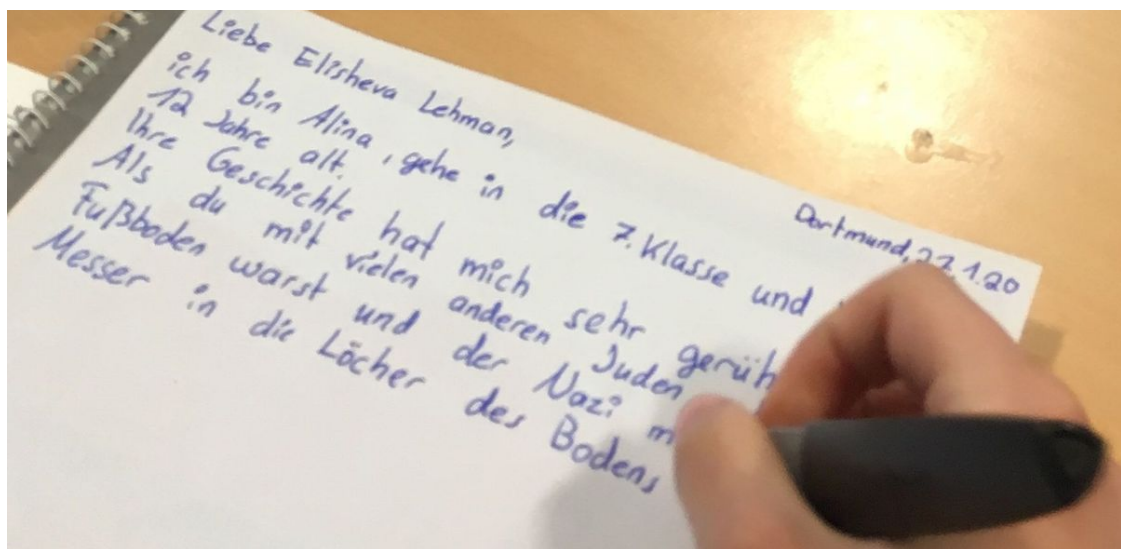 Dortmund, 27.1.20
Liebe Elisheva Lehman,
ich bin Alina, gehe in die 7. Klasse und
12 Jahre alt.
Ihre Geschichte hat mich sehr gerüh
Als du mit vielen anderen Juden
Fußboden warst und der Nazi m
Messer in die Löcher des Bodens